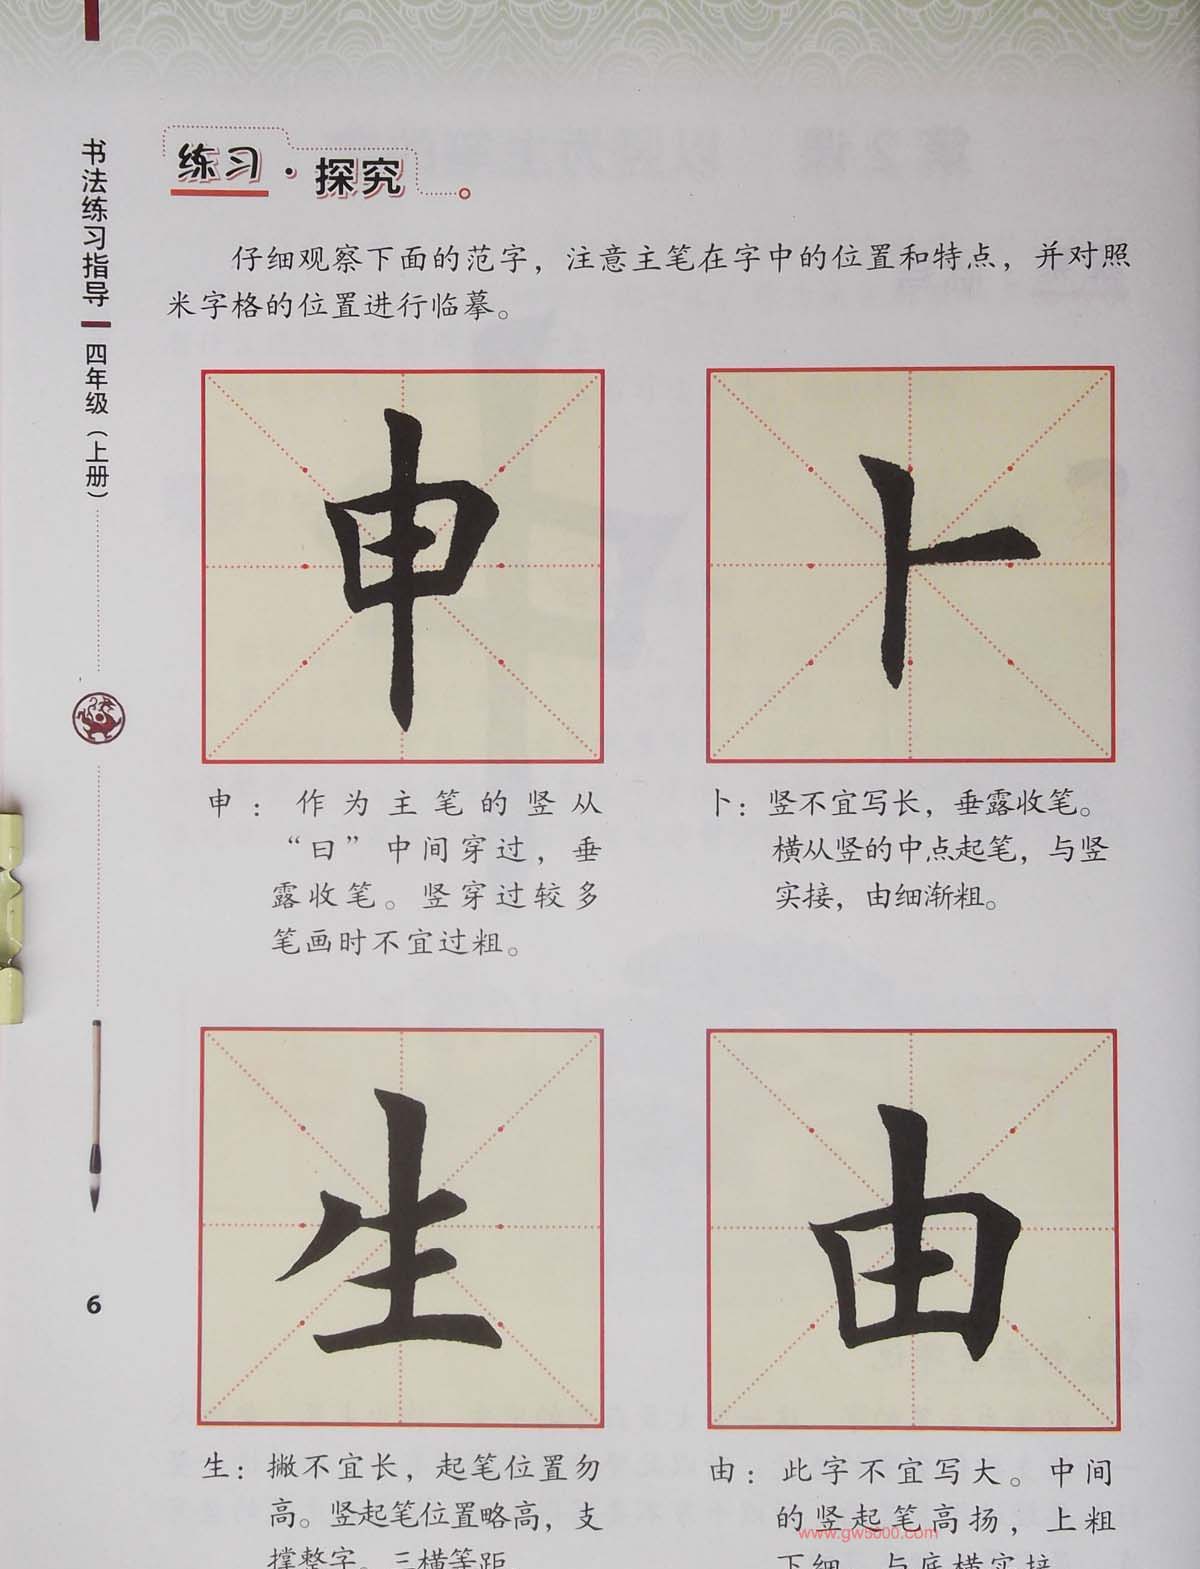 书法练习指导
四年级（上册）
6
练习·探究
仔细观察下面的范字，注意主笔在字中的位置和特点，并对照
米字格的位置进行临摹。
申
卜
申：作为主笔的竖从
“曰”中间穿过，垂
露收笔。竖穿过较多
笔画时不宜过粗。
卜：竖不宜写长，垂露收笔。
横从竖的中点起笔，与竖
实接，由细渐粗。
生
由
生：撇不宜长，起笔位置勿
高。竖起笔位置略高，支
撑整字。三横等距
由：此字不宜写大。中间
的竖起笔高扬，上粗
下细，与底横实接
www.gw5000.com